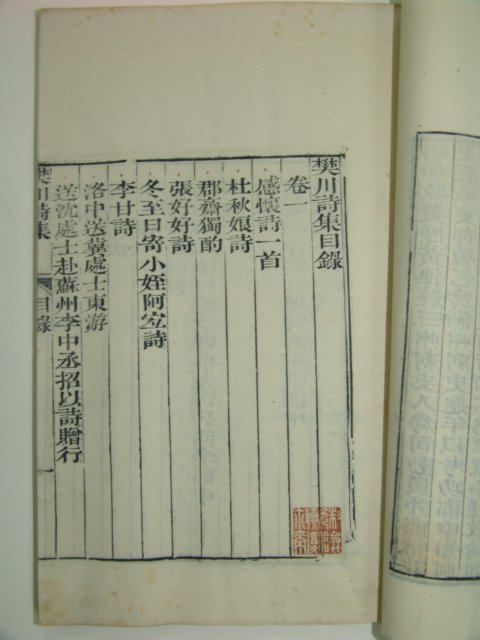 樊川詩集目錄
卷一
感懷詩一首
杜秋娘詩
郡齋獨酌
張好好詩
冬至日寄小姪阿宜詩
李甘詩
洛中送冀處士東游
送沈處士赴蘇州李中丞招以詩贈行
樊川詩集
目錄
一